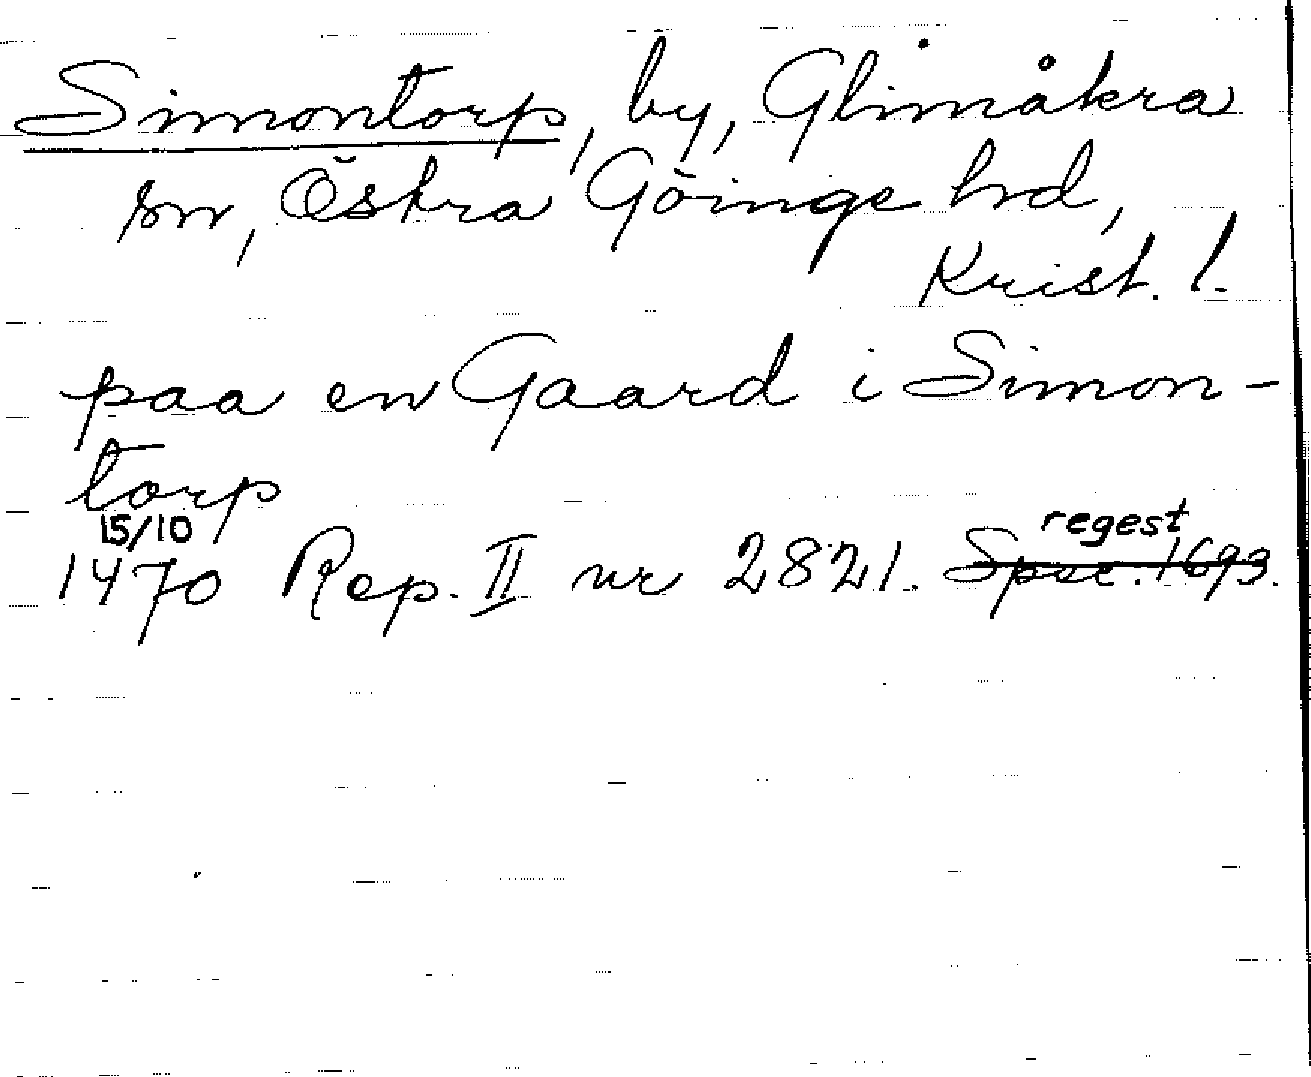 Simontorp, by, Glimåkra
sn, Östra Göinge hd,
Krist. l.
paa en Gaard i Simon-
torp
15/10 regest
1470 Rep. II nr 2821. Spec. 1693.